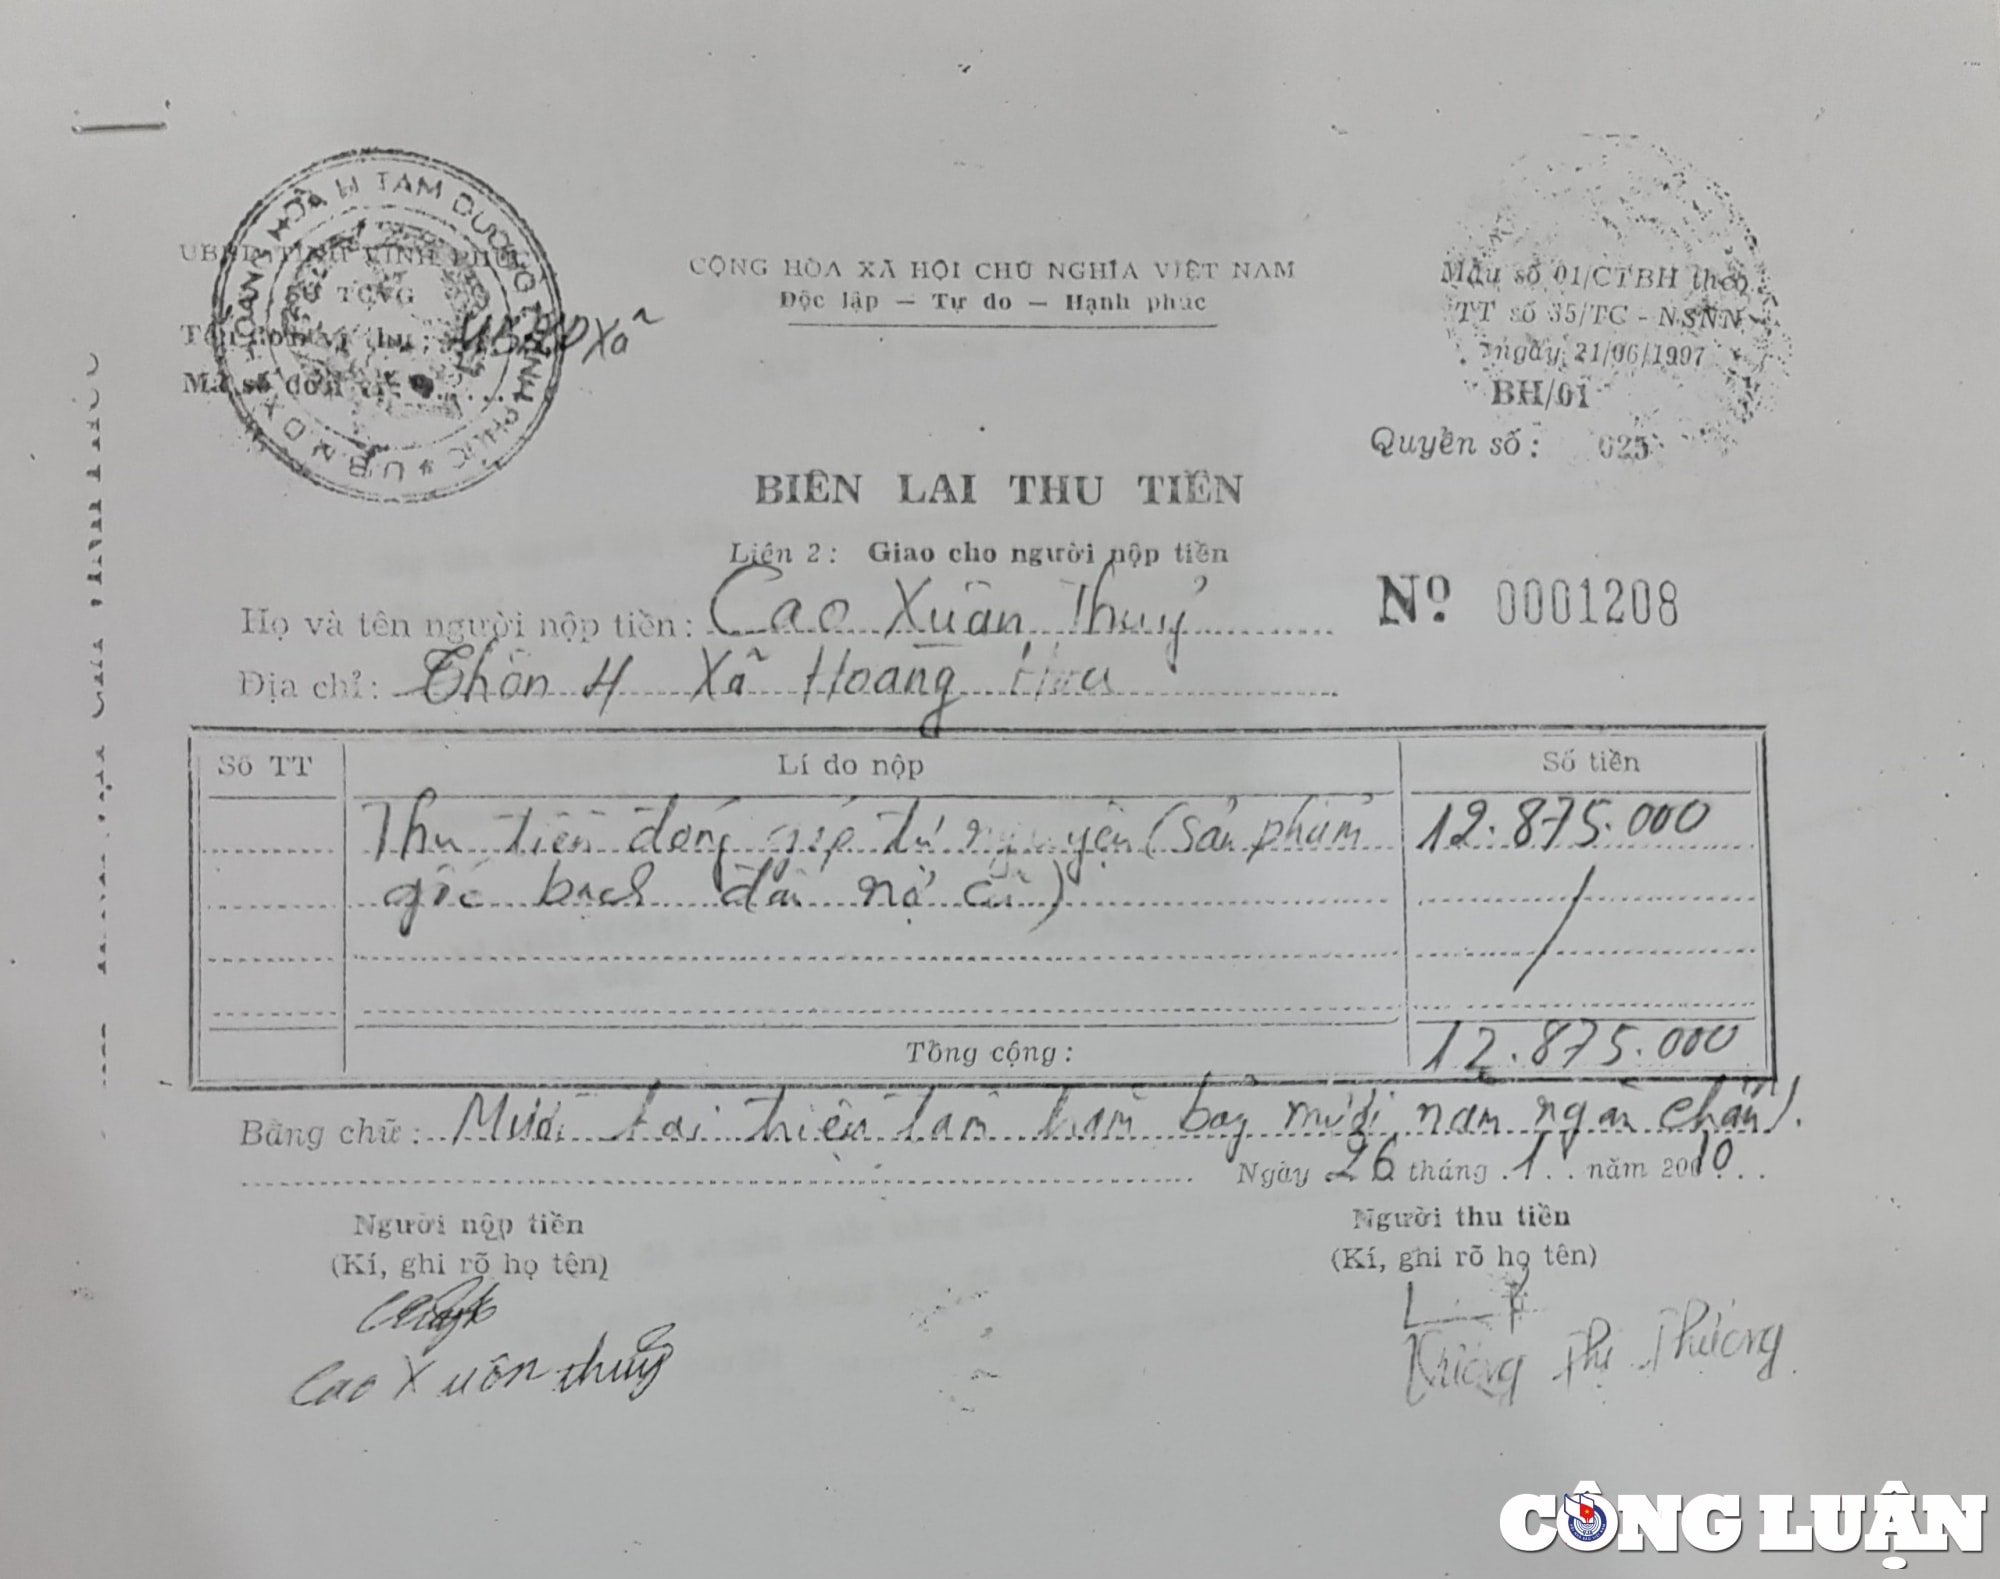 UBND TỈNH VĨNH PHÚC
SỞ TCVG
Tên đơn vị thu: UBND Xã
Mã số đơn vị:
HOÀNG HOA H TAM DƯƠNG T VĨNH PHÚC * UBND X
CỘNG HÒA XÃ HỘI CHỦ NGHĨA VIỆT NAM
Độc lập — Tự do — Hạnh phúc
Mẫu số 01/CTBH theo
TT số 35/TC - NSNN
ngày 21/06/1997
BH/01
Quyển số: 025
BIÊN LAI THU TIỀN
Liên 2: Giao cho người nộp tiền
Nº 0001208
Họ và tên người nộp tiền: Cao Xuân Thuỷ
Địa chỉ: Thôn 4 Xã Hoàng Hoa
Số TT Lí do nộp Số tiền
Thu tiền đóng góp tự nguyện (sản phẩm 12.875.000
gốc bạch đàn nợ cũ)
Tổng cộng: 12.875.000
Bằng chữ: Mười hai triệu tám trăm bảy mươi năm ngàn chẵn).
Ngày 26 tháng 1 năm 2010
Người nộp tiền
(Kí, ghi rõ họ tên)
Cao Xuân Thuỷ
Người thu tiền
(Kí, ghi rõ họ tên)
Khương Thị Phương
CÔNG LUẬN